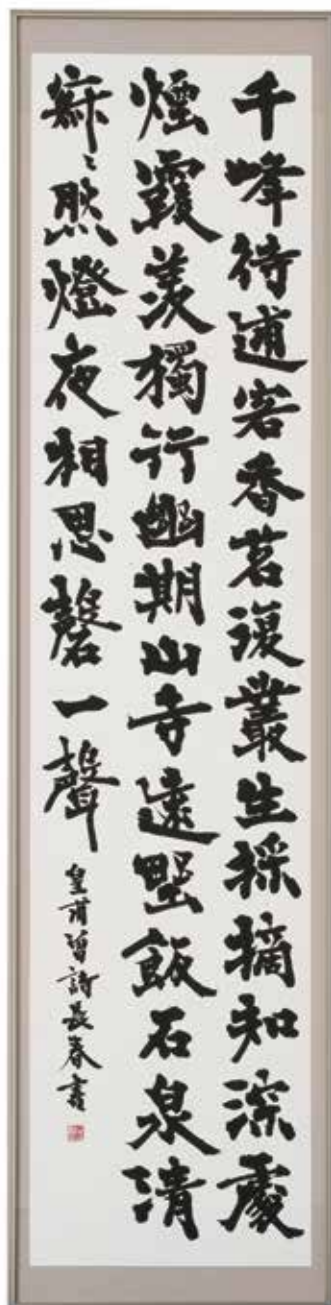 千峰待逋客香茗復叢生採摘知深處
煙霞羨獨行幽期山寺遠野飯石泉清
寂〻然燈夜相思磬一聲
皇甫曾詩長春書